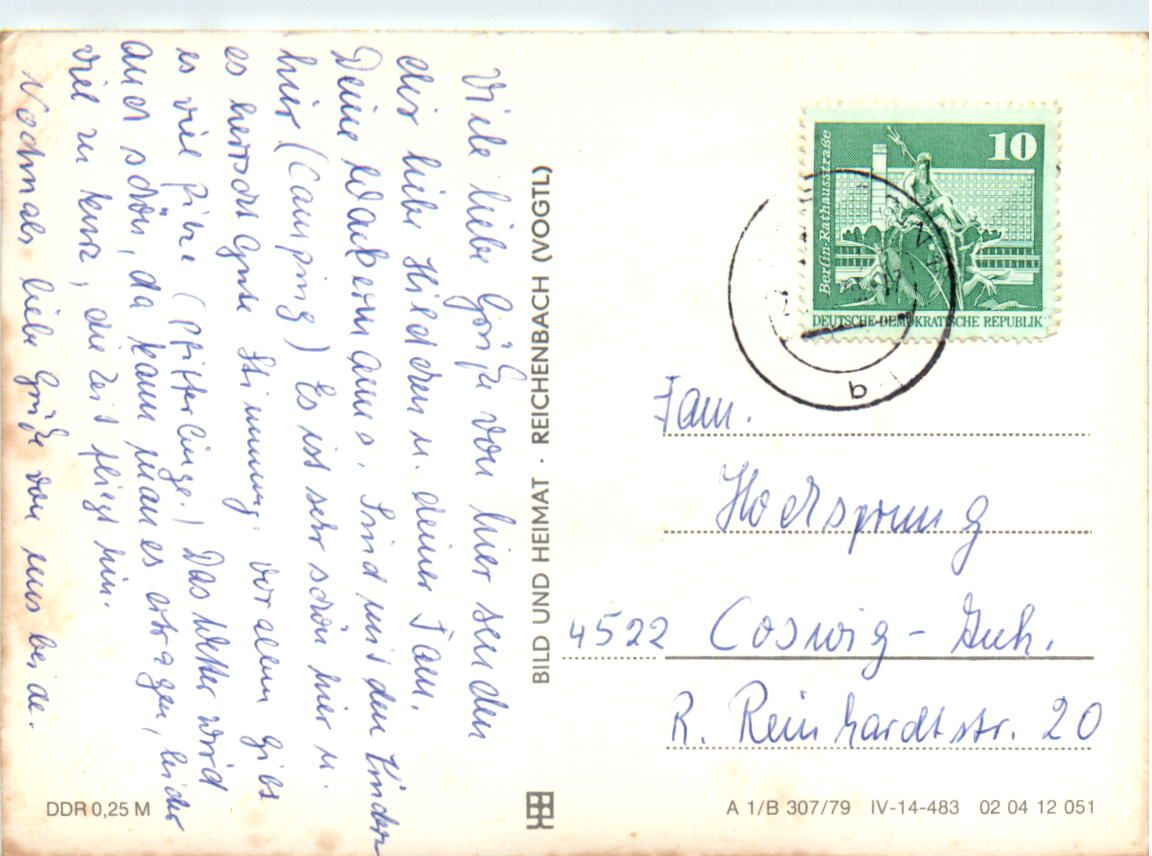 Viele liebe Grüße von hier senden
dir liebe Hildchen u. deiner Fam.
Deine Wackermanns. Sind mit den Kindern
hier (Camping) Es ist sehr schön hier u.
es herrscht Gute Stimmung. Vor allem gibt
es viel Pilze (Pfifferlinge.) Das Wetter wird
auch schön, da kann man es ertragen, leider
viel zu kurz, die Zeit fliegt hin.
Nochmals liebe Grüße von uns beide.
DDR 0,25 M
BILD UND HEIMAT · REICHENBACH (VOGTL)
Berlin-Rathausstraße
10
DEUTSCHE DEMOKRATISCHE REPUBLIK
Fam.
Hochsprung
4522 Coswig - Anh.
R. Reinhardtstr. 20
A 1/B 307/79 IV-14-483 02 04 12 051